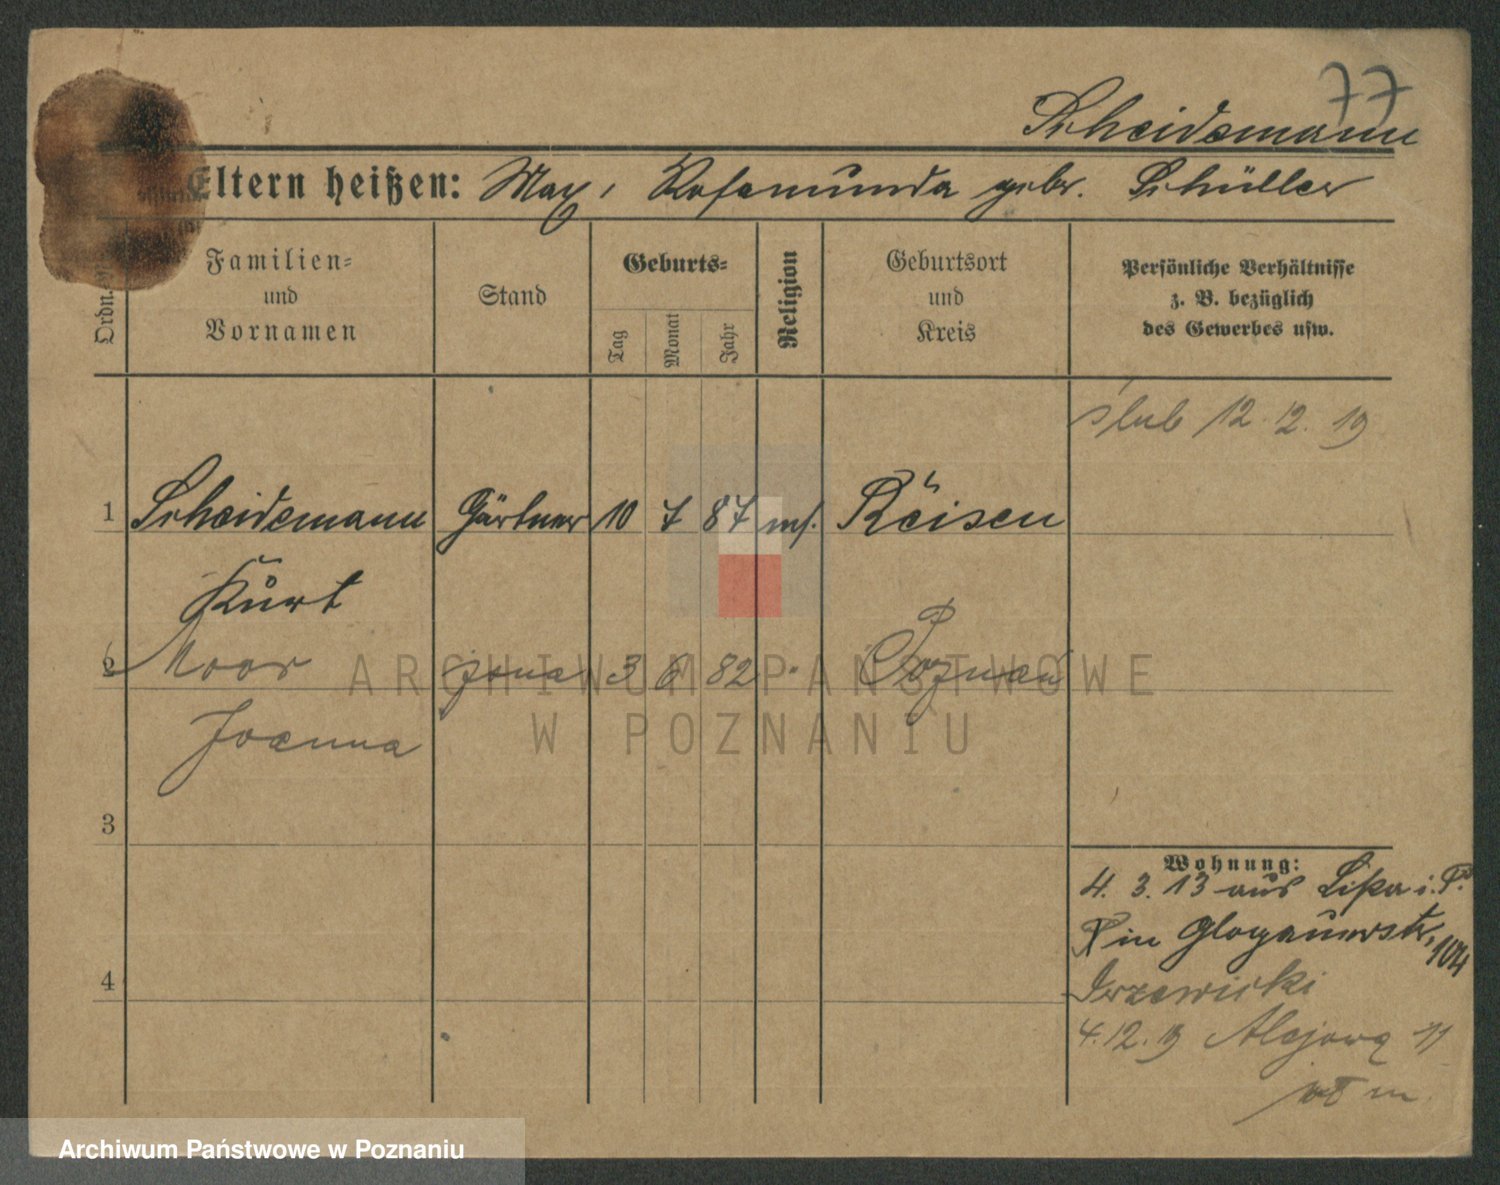 77
Scheidemann
Eltern heißen: Max, Rosamunda gebr. Schüller
Ordn.
Familien-
und
Vornamen
Stand
Geburts-
Tag
Monat
Jahr
Religion
Geburtsort
und
Kreis
Persönliche Verhältnisse
z. B. bezüglich
des Gewerbes usw.
ślub 12.12.19
1 Scheidemann Gärtner 10 7 87 Reisen
Kurt
2 Moor żona 3 6 82 " Poznań
P
Joanna
3
4
Wohnung:
4. 3. 13 aus Lissa i. P.
in Glogauerstr. 104
4.12.19 Alejowa 11
ARCHIWUM PAŃSTWOWE
W POZNANIU
Archiwum Państwowe w Poznaniu